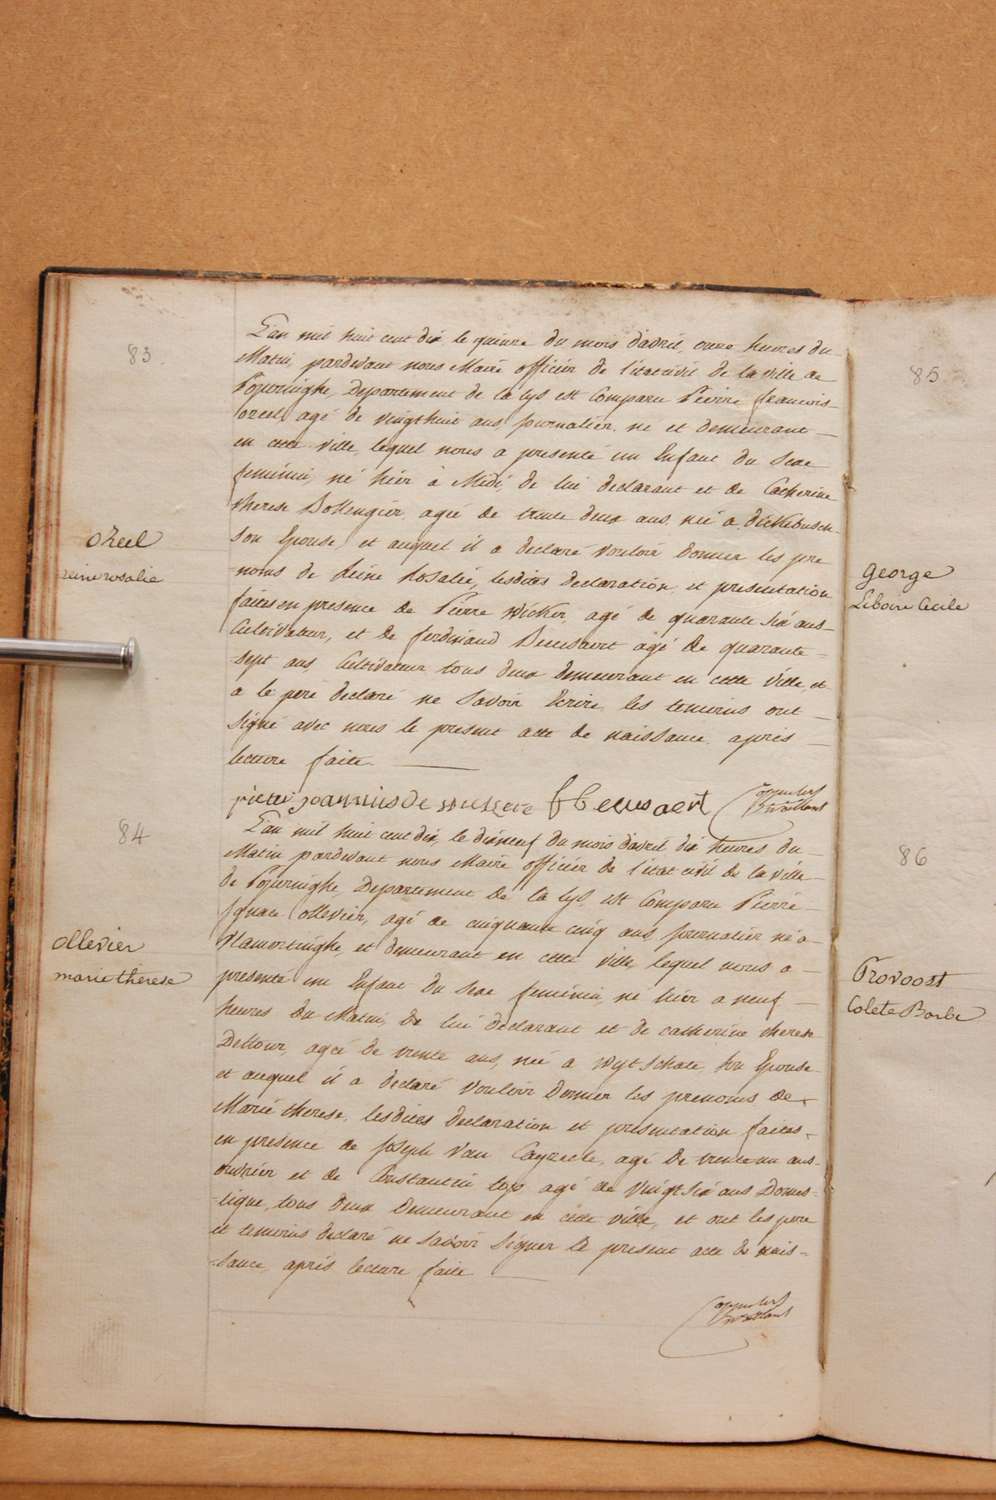 83.
orecl
reine rosalie
L'an mil huit cent dix le quinze du mois d'avril, onze heures du
Matin, pardevant nous Maire officier de l'état civil de la ville de
Poperinghe, Departement de la Lys est Comparu Pierre francois
orcel, agé de vingthuit ans journalier, né et demeurant
en cette ville, lequel nous a presenté un Enfant du sexe
feminin, né hier à Midi, de lui declarant et de Catherine
therese Bollengier, agée de trente deux ans, née à dickebusch
son Epouse, et auquel il a declaré vouloir Donner les pre
noms de Reine Rosalie, lesdites declaration et presentation
faites en presence de Pierre agé de quarante six ans
Cultivateur, et de ferdinand Beusaert agé de quarante
sept ans Cultivateur tous deux demeurant en cette ville, et
a le pere declaré ne savoir Ecrire, les temoins ont
signé avec nous le present acte de naissance après
lecture faite
pieter joannis de f Beusaert
84
ollevier
marie thérese
L'an mil huit cent dix, le dixneuf du mois d'avril dix heures du
Matin pardevant nous Maire officier de l'état civil de la ville
de Poperinghe, Departement de la Lys, est Comparu Pierre
Ignace ollevier, agé de cinquante cinq ans, journalier né à
Vlamertinghe, et demeurant en cette ville, lequel nous a
presenté un Enfant du sexe feminin, né hier a neuf
heures du Matin, de lui declarant et de catherine therese
Deltour, agée de trente ans, née a Wytschate, son Epouse
et auquel il a declaré vouloir Donner les prenoms de
Marie therese, lesdites declaration et presentation faites
en presence de Joseph Van Cayzeele, agé de trente un ans
ouvrier et de Constantin agé de vingt six ans Domes-
tique, tous deux Demeurant en cette ville, et ont les pere
et temoins declaré ne savoir signer le present acte de nais-
sance après lecture faite
85
george
Liboire Cecile
86
Provoost
Colete Barbe